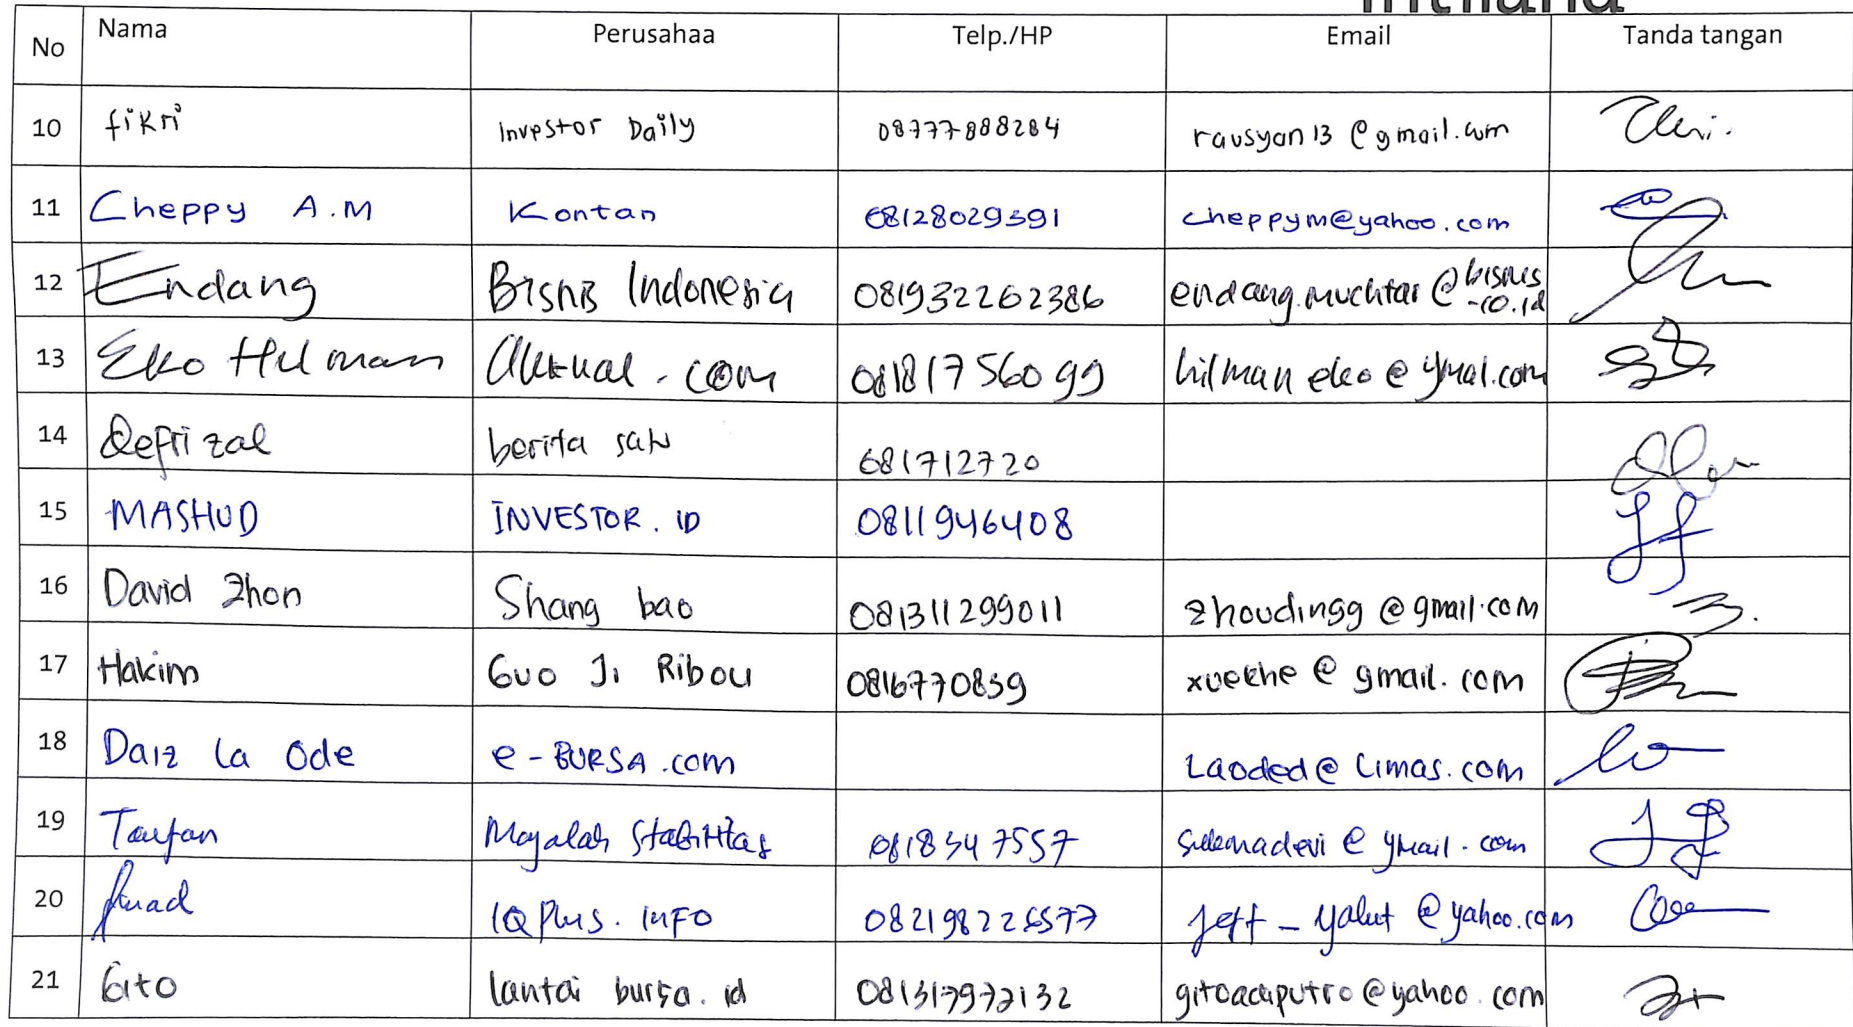 No Nama Perusahaa Telp./HP Email Tanda tangan
10 fikri Investor Daily 08777888284 rausyan13@gmail.com
11 Cheppy A.M Kontan 08128029591 cheppym@yahoo.com
12 Endang Bisnis Indonesia 081932262386 endang.muchtar@bisnis
-co.id
13 Eko Hilman aktual.com 08181756099 hilmaneko@ymail.com
14 Defrizal berita satu 081712720
15 MASHUD INVESTOR.ID 0811946408
16 David Zhon Shang bao 081311299011 zhoudingg@gmail.com
17 Hakim Guo Ji Ribou 0816770859 @gmail.com
18 Daiz la Ode e-BURSA.com Laoded@Limas.com
19 Taufan Majalah Stabilitas 0818347557 @ymail.com
20 fuad IQPlus.INFO jeff_yalut@yahoo.com
21 Gito lantai bursa.id